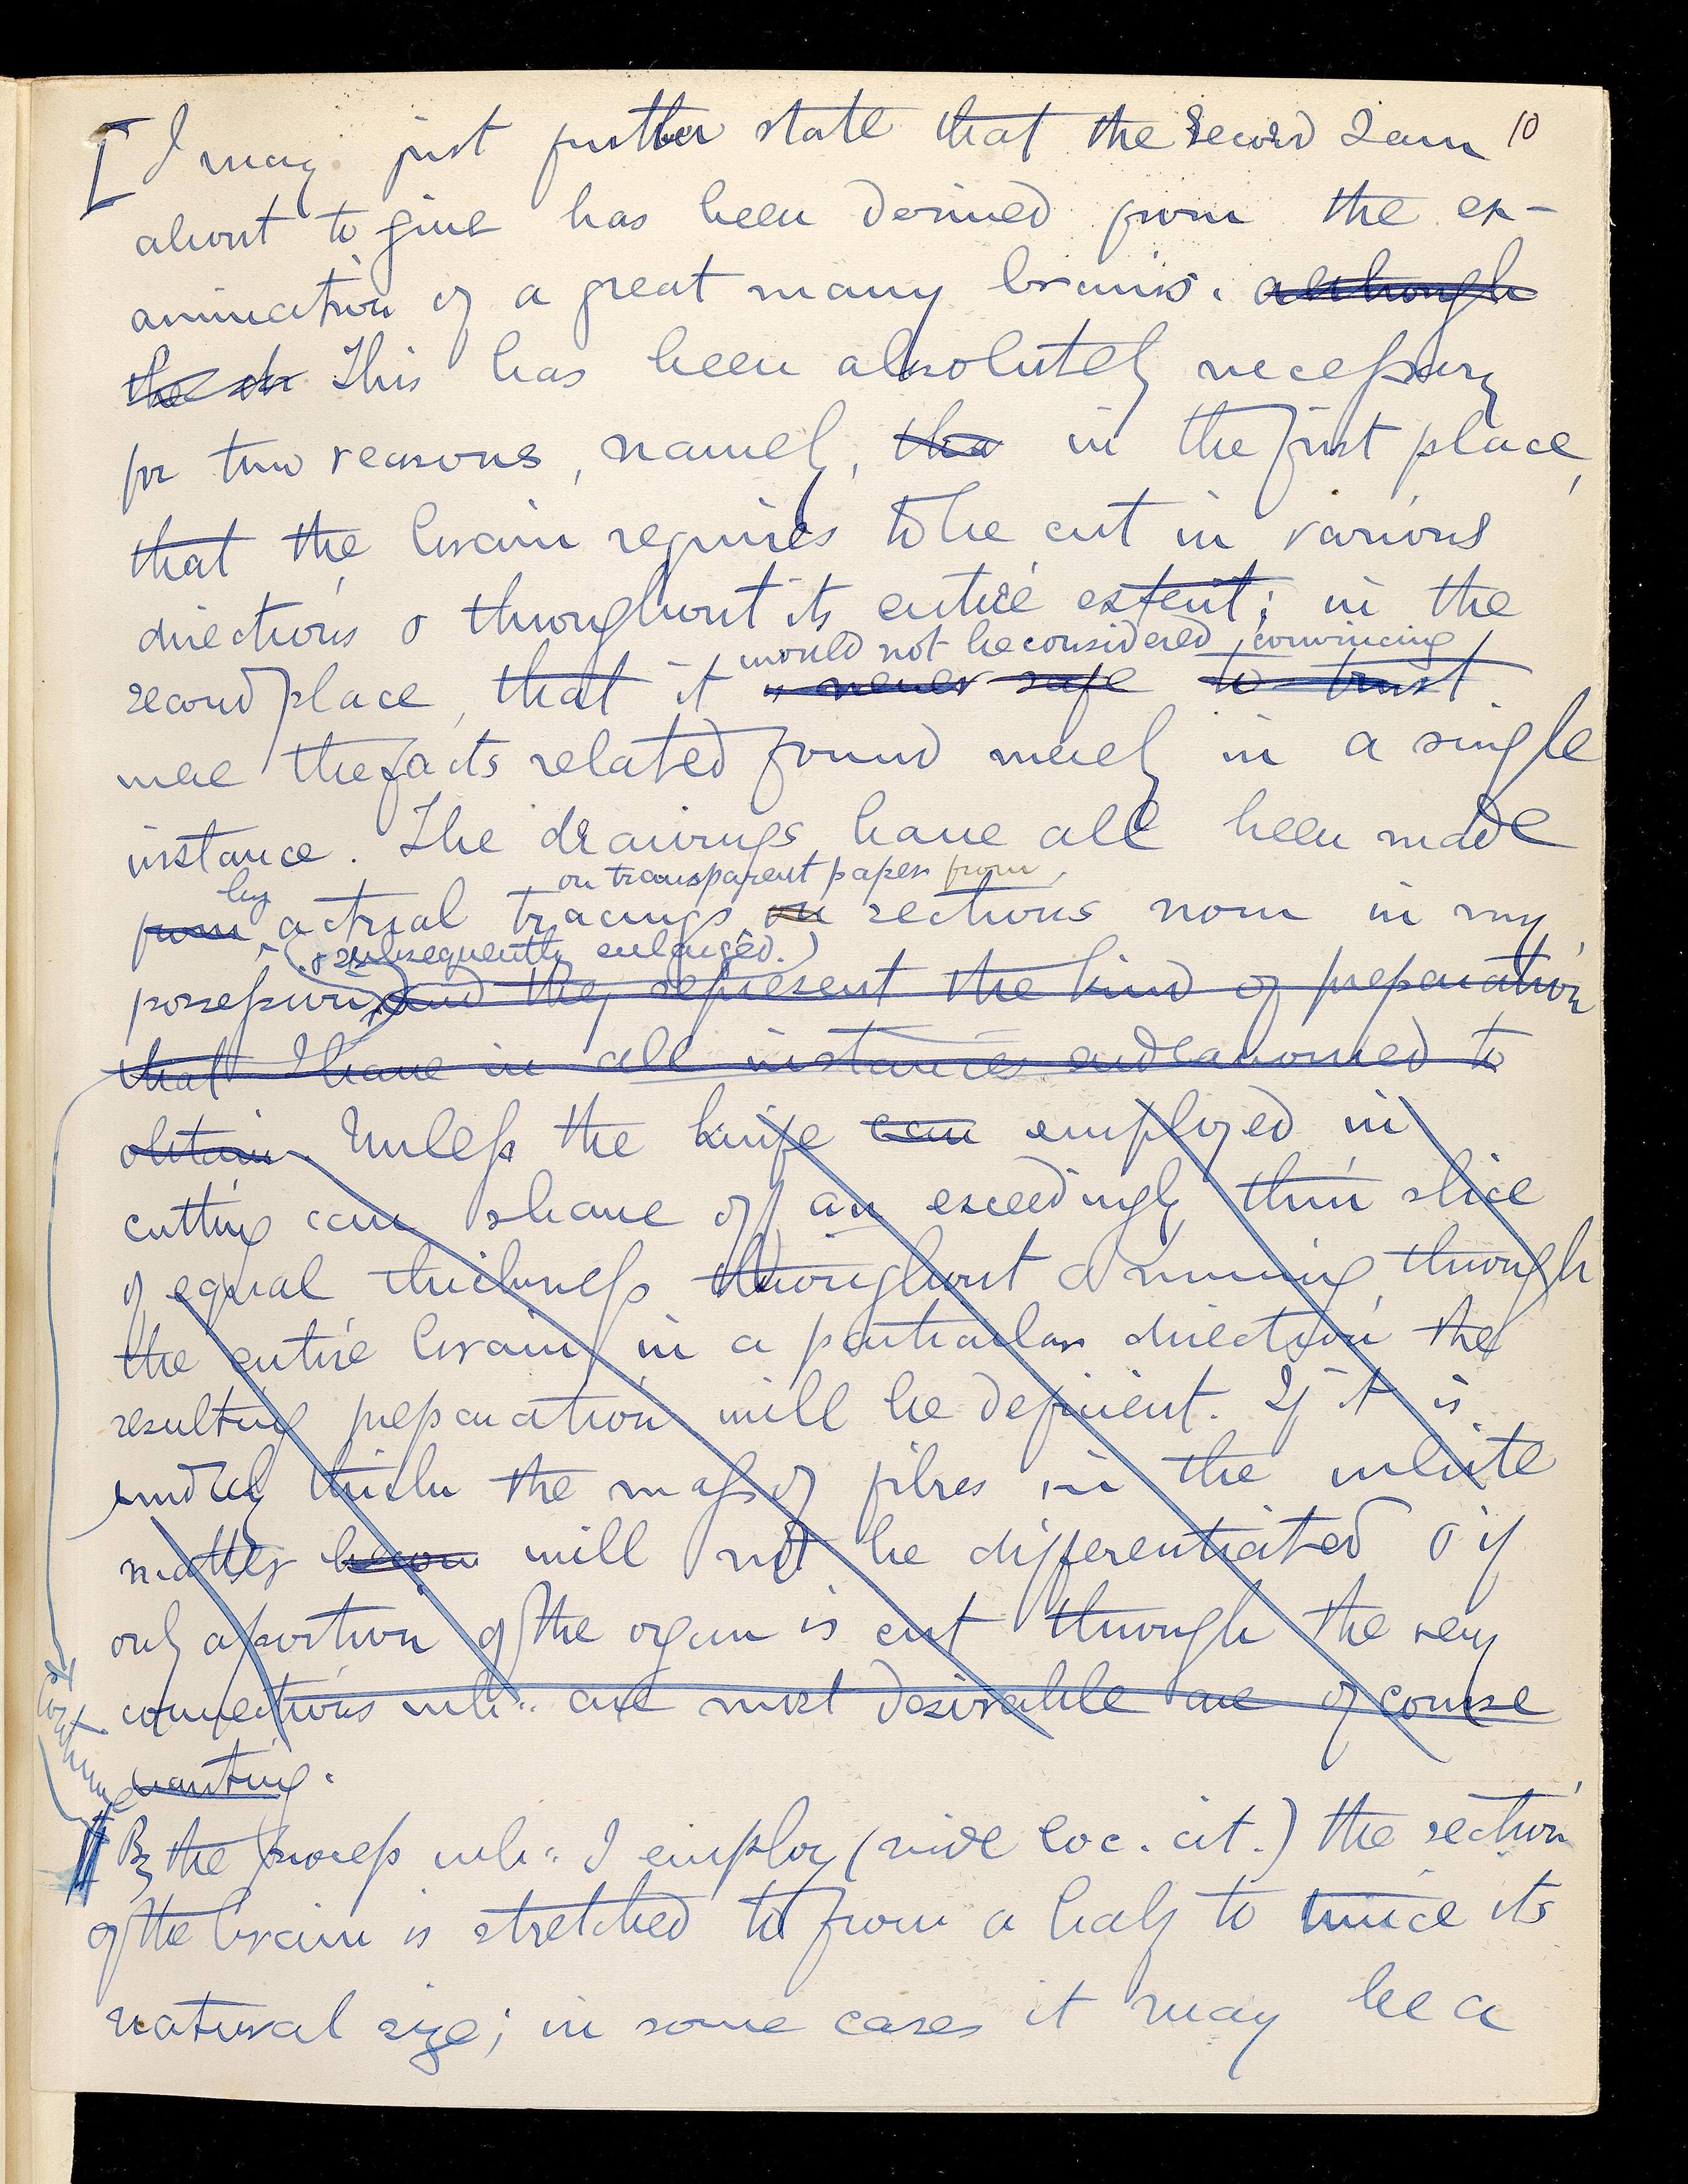 [I may just further state that the record I am 10
about to give has been derived from the ex-
amination of a great many brains. although
the This has been absolutely necessary
for two reasons, namely, tha in the first place,
that the brain requires to be cut in various
directions & throughout its entire extent; in the
would not be considered convincing
second place, that it is never safe to trust
were the facts related found merely in a single
instance. The drawings have all been made
by on transparent paper from
from actual tracings on sections now in my
(& subsequently enlarged.)
possession, and they represent the kind of preparation
that I have in all instances endeavoured to
obtain. Unless the knife can employed in
cutting can shave off an exceedingly thin slice
of equal thickness throughout & running through
the entire brain in a particular direction the
resulting preparation will be deficient. If it is
unduly thick the mass of fibres in the white
matter will not be differentiated & if
only a portion of the organ is cut through the very
connections wh: are most desirable are of course
wanting.
Continue
By the process wh: I employ (vide loc. cit.) the section
of the brain is stretched to from a half to twice its
natural size; in some cases it may be a